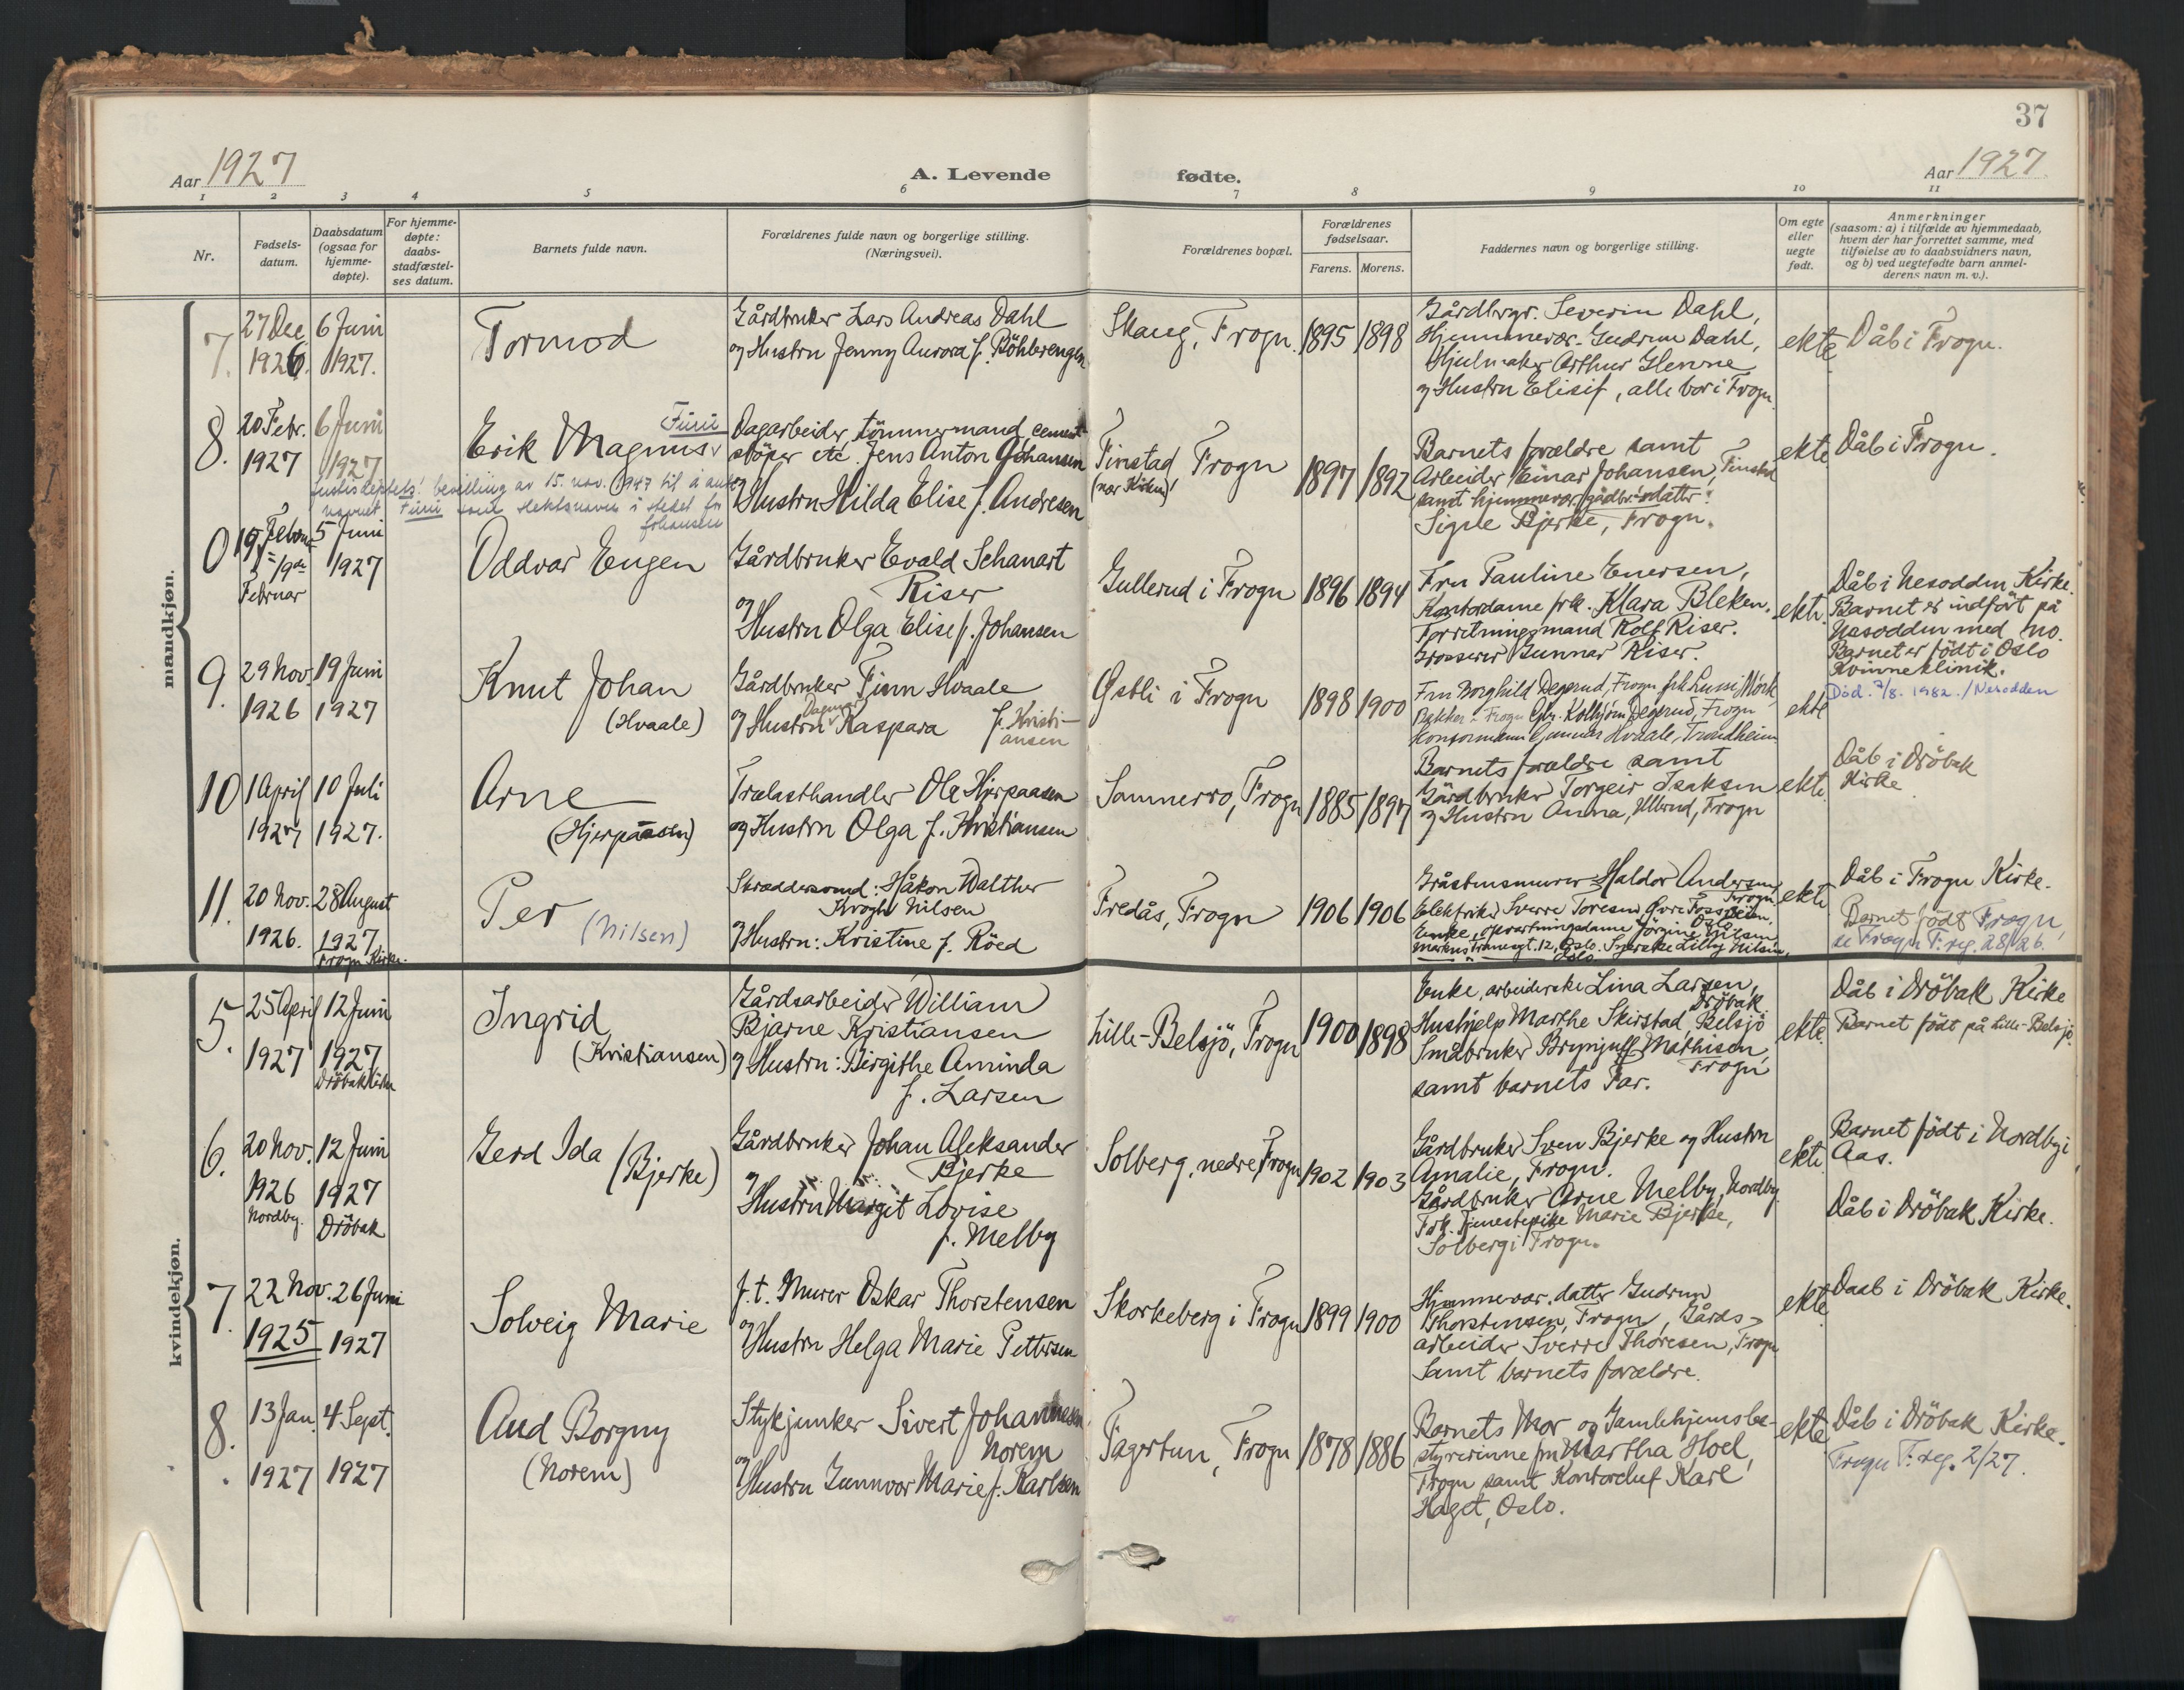 37
Aar 1927
A. Levende
fødte.
Aar 1927.
1 2 3 4 5 6 7 8 9 10 11
Nr.
Fødsels-
datum.
Daabsdatum
(ogsaa for
hjemme-
døpte).
For hjemme-
døpte:
daabs-
stadfæstel-
ses datum.
Barnets fulde navn.
Forældrenes fulde navn og borgerlige stilling.
(Næringsvei).
Forældrenes bopæl.
Forældrenes
fødselsaar.
Farens. Morens.
Faddernes navn og borgerlige stilling.
Om egte
eller
uegte
født.
Anmerkninger
(saasom: a) i tilfælde av hjemmedaab,
hvem der har forrettet samme, med
tilføielse av to daabsvidners navn,
og b) ved uegtefødte barn anmel-
derens navn m. v.).
mandkjøn.
7.
27 Dec
1926.
6 Juni
1927.
Tormod
Gårdbruker Lars Andreas Dahl
og Hustru Jenny Aurora f. Böhlerengen
Skaug, Frogn.
1895
1898
Gårdbrgr. Severin Dahl,
Hjemmevær. Gudrun Dahl,
Hjulmaker Arthur Glenne
og Hustru Elisif, alle bor i Frogn.
ekte
Dåb i Frogn.
8.
20 Febr.
1927
6 Juni
1927
Furu
Erik Magnus
Justisdeptets bevilling av 15. nov. 1947 til å anta
navnet Furu som slektsnavn i stedet for
Johansen
Dagarbeider, tömmermand, cement-
stöper etc. Jens Anton Johansen
og
Hustru Hilda Elise f. Andresen
Finstad, Frogn
(nær Kirken)
1897
1892
Barnets forældre samt
Arbeider Einar Johansen, Finstad
samt hjemmevær. gådbr.datter:
Signe Bjerke, Frogn.
ekte
Dåb i Frogn.
0
19 Februar
19de
Februar
5 Juni
1927
Oddvar Eugen
Gårdbruker Evald Schanart
Riser
og
Hustru Olga Elise f. Johansen
Gullerud i Frogn
1896
1894
Fru Pauline Enersen,
Kontordame frk. Klara Bleken.
Forretningsmand Rolf Riser.
Grosserer Gunnar Riser.
ekte.
Dåb i Nesodden Kirke.
Barnet er indfört på
Nesodden med no.
Barnet er födt i Oslo
Kvinneklinik.
Död. 7/8. 1982. / Nesodden
9.
29 Nov.
1926
19 Juni
1927
Knut Johan
(Hvaale)
Gårdbruker Finn Hvaale
og Hustru Dagmar Kaspara f. Kristi-
ansen
Østli i Frogn
1898
1900
Fru Borghild Degerud, Frogn frk Lussi Mörk
Bakker - Frogn Gbr. Kolbjörn Degerud, Frogn
Kontormann Gunnar Hvaale, Trondheim
ekte
10
1 April
1927
10 Juli
1927.
Arne
(Hjerpaasen)
Trælasthandler Ola Hjerpaasen
og Hustru Olga f. Kristiansen
Sommerro, Frogn
1885
1897
Barnets forældre samt
Gårdbruker Torgeir Isaksen
og Hustru Anna, Ullerud, Frogn
ekte.
Dåb i Dröbak
Kirke
11.
20 Nov.
1926.
28 August
1927
Frogn Kirke.
Per (Nilsen)
Skræddersvend: Håkon Walther
Krogh Nilsen
og Hustru: Kristine f. Röed
Fredås, Frogn
1906
1906
Gråstensmurer Haldor Andersen
Frogn.
Elektriker Sverre Toresen
Enke, opvartningsdame Jörgine Nilsen
Markus Tranesgt. 12, Oslo. Syerske Lilly Nilsen,
Oslo
ekte
Dåb i Frogn Kirke.
Barnet födt Frogn,
se Frogn F.reg. 28/26.
kvindekjøn.
5.
25 April
1927
12 Juni
1927
Dröbak Kirke
Ingrid
(Kristiansen)
Gårdsarbeider William
Bjarne Kristiansen
og Hustru: Birgithe Aminda
f. Larsen
Lille-Belsjö, Frogn
1900
1898
Enke, arbeiderske Lina Larsen,
Dröbak
Hushjelp Marthe Skirstad, Belsjö
Småbruker Brynjulf Mathisen,
Frogn
samt barnets Far.
ekte.
Dåb i Dröbak Kirke
Barnet födt på Lille-Belsjö.
6.
20 Nov.
1926
Nordby.
12 Juni
1927
Dröbak
Gerd Ida (Bjerke)
Gårdbruker Johan Aleksander
Bjerke
og
Hustru Margit Lovise
f. Melby
Solberg, nedre, Frogn
1902
1903
Gårdbruker Sven Bjerke og Hustru
Amalie, Frogn.
Gårdbruker Arne Melby, Nordby
Frk. Tjenestepike Marie Bjerke,
Solberg i Frogn.
ekte
Barnet födt i Nordby i
Aas.
Dåb i Dröbak Kirke.
7.
22 Nov.
1925
26 Juni
1927
Solveig Marie
f.t. Murer Oskar Thorstensen
og
Hustru Helga Marie Pettersen
Skorkeberg i Frogn
1899
1900
Hjemmevær. datter Gudrun
Thorstensen, Frogn, Gårds-
arbeider Sverre Thoresen, Frogn
Samt barnets forældre.
ekte
Daab i Dröbak Kirke.
8.
13 Jan.
1927
4 Sept.
1927
Aud Borgny
(Norem)
Stykjunker Sivert Johannesen
Norem
og
Hustru Gunnvor Marie f. Karlsen
Fagertun, Frogn
1878
1886
Barnets Mor og Gamlehjemsbe-
styrerinne fru Martha Hoel,
Frogn samt Kontorchef Karl
Haget, Oslo.
ekte
Dåb i Dröbak Kirke.
Frogn F.reg. 2/27.